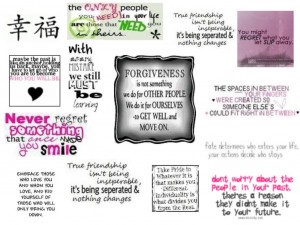 幸福
the CRAZY people
you NEED in your life
are those that NEED you
in theirs.
True friendship
isn't being
inseparable,
it's being seperated &
nothing changes
You might
REGRET what you
LET SLIP away.
With
every
MISTAKE
we still
MUST
be
learning
maybe the past is
WHO YOU WILL BE.
FORGIVENESS
is not something
we do for OTHER PEOPLE.
We do it for OURSELVES
-to GET WELL and
MOVE ON.
THE SPACES IN BETWEEN
YOUR FINGERS
WERE CREATED SO
SOMEONE ELSE'S
COULD FIT RIGHT IN BETWEEN
Never regret
something
that once made
you smile
Fate determines who enters your life,
your actions decide who stays.
EMBRACE THOSE
WHO LOVE YOU
AND WHOM YOU
LOVE, AND RID
YOURSELF OF
THOSE WHO WILL
ONLY BRING YOU
DOWN.
True friendship
isn't being
inseparable,
it's being seperated &
nothing changes
Take Pride in
Whatever It is
that makes you
Different.
Individuality is
what divides you
from the Rest.
dont worry about the
people in your past,
theres a reason
they didnt make it
to your future.